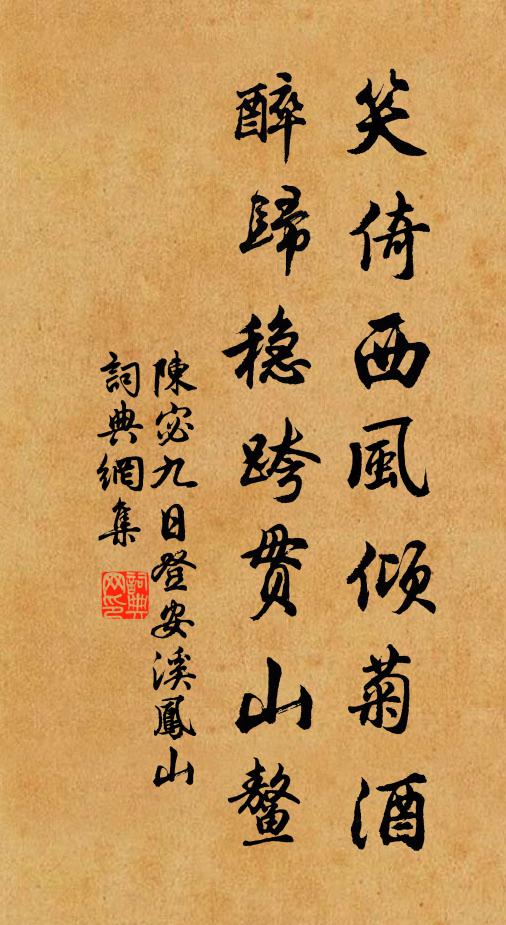 笑倚西風傾菊酒
醉歸穩跨貫山鰲
陳宓九日登安溪鳳山
詞典網集
詞典网印